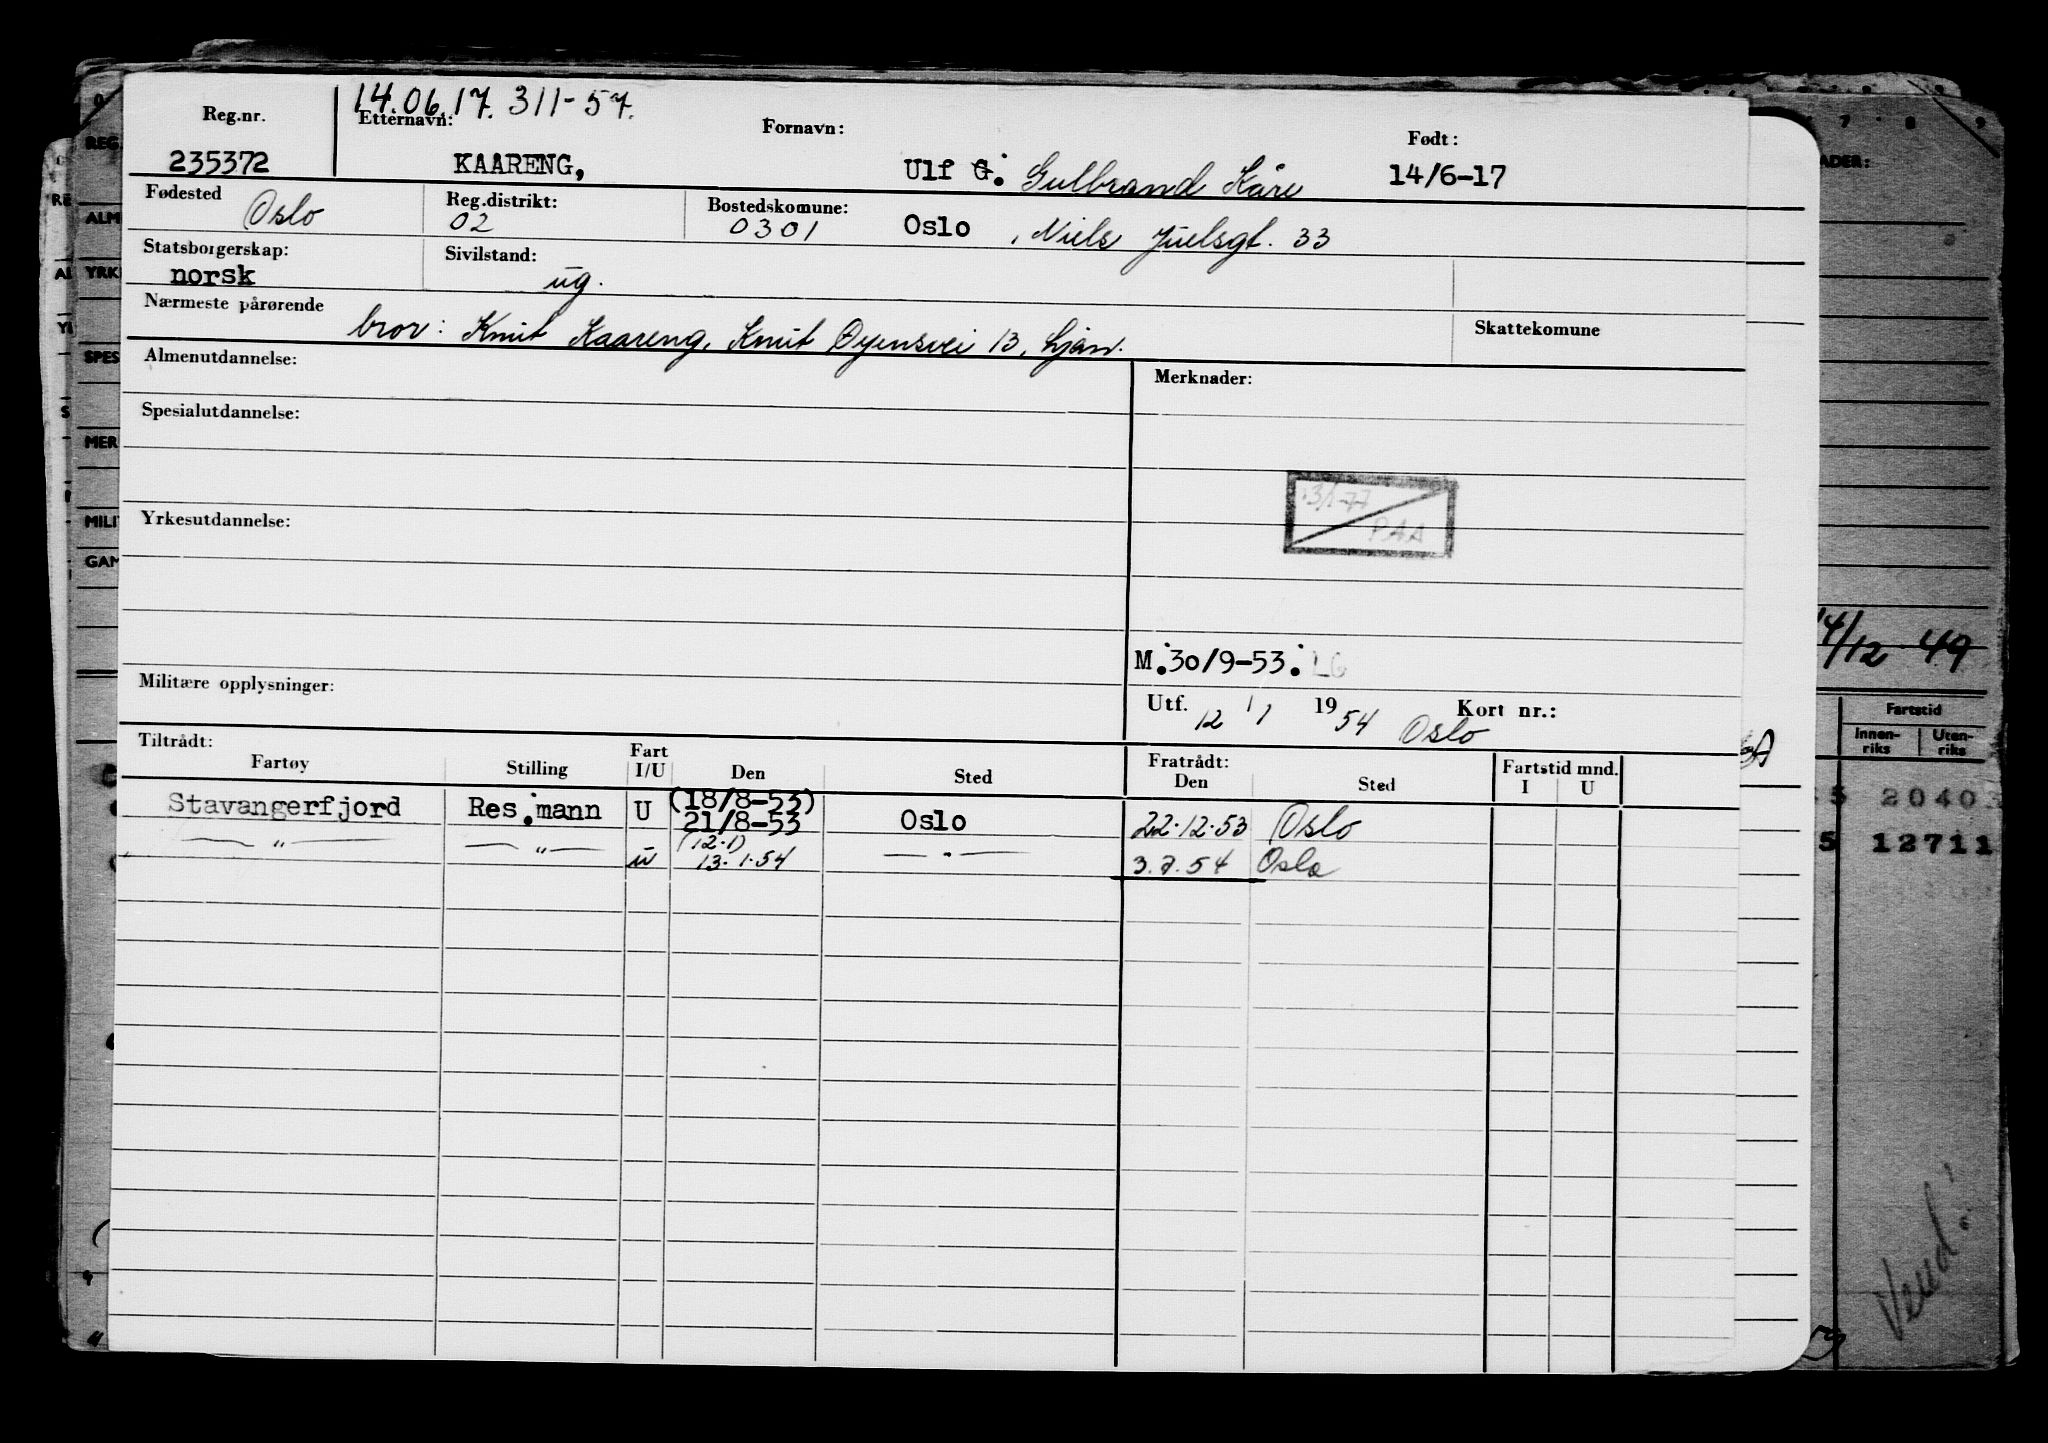 14.06.17. 311-57.
Reg.nr. Etternavn: Fornavn: Født:
235372 KAARENG, Ulf G. Gulbrand Kåre 14/6-17
Fødested Oslo Reg.distrikt: 02 Bostedskommune: 0301 Oslo, Niels Juelsgt. 33
Statsborgerskap: norsk Sivilstand: ug.
Nærmeste pårørende bror: Knut Kaareng, Knut Øyensvei 13, Ljan. Skattekomune
Almenutdannelse: Merknader:
Spesialutdannelse:
13/1-77
PAA
Yrkesutdannelse:
M.30/9-53. LG
Militære opplysninger: Utf. 12/1 1954 Oslo Kort nr.:
Tiltrådt: Fratrådt:
Fartøy Stilling Fart I/U Den Sted Den Sted Fartstid mnd. I U
Stavangerfjord Res.mann U (18/8-53) 21/8-53 Oslo 22.12.53 Oslo
— " — — " — U (12.1) 13.1.54 — " — 3.7.54 Oslo
14/12 49
Fartstid
Innen-riks Uten-riks
5 2040
5 12711
Vend!